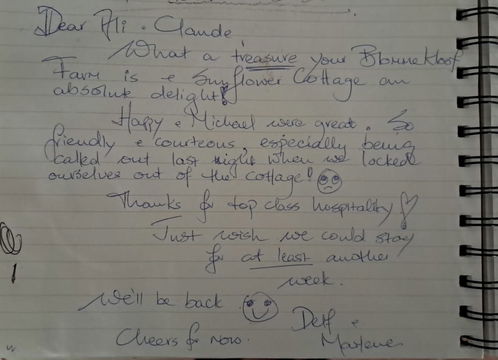 Dear Ali & Claude
What a treasure your Blommekloof
Farm is & Sunflower Cottage an
absolute delight!
Happy & Michael were great. So
friendly & courteous, especially being
called out last night when we locked
ourselves out of the cottage!
Thanks for top class hospitality!
Just wish we could stay
for at least another
week.
We'll be back
&
Cheers for now. Marlene